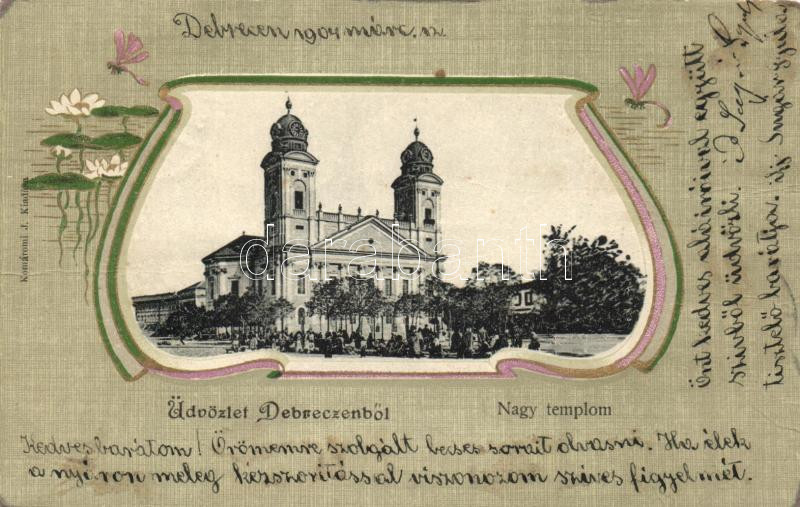 Debrecen 1904 márc. 12
Komáromi J. Kiadása
darabanth
Üdvözlet Debreczenből
Nagy templom
Kedves barátom! Örömemre szolgált becses sorait olvasni. Ha élek
a nyáron meleg kézszorítással viszonozom szíves figyelmét.
Önt kedves aláíróival együtt
szívből üdvözli.
tisztelő barátja. ifj Sugár Gyula